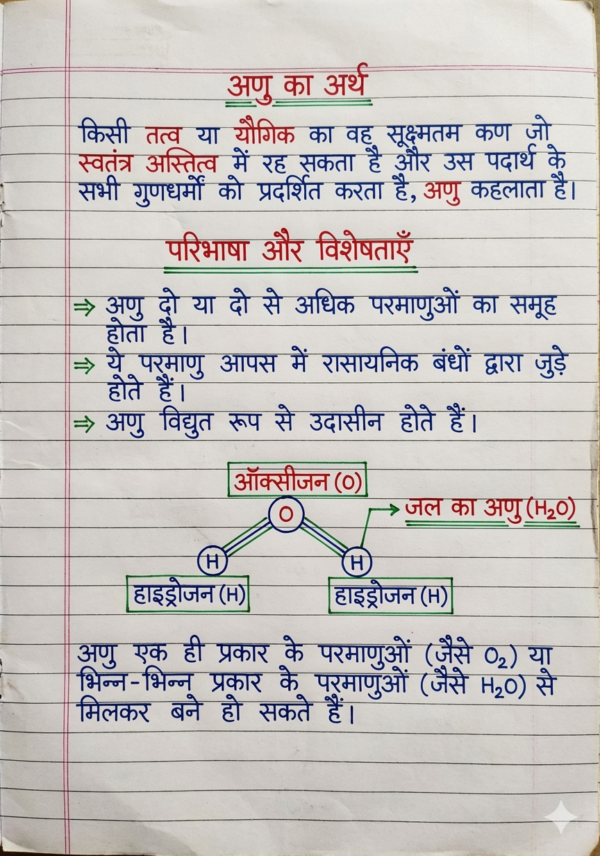 अणु का अर्थ
किसी तत्व या यौगिक का वह सूक्ष्मतम कण जो
स्वतंत्र अस्तित्व में रह सकता है और उस पदार्थ के
सभी गुणधर्मों को प्रदर्शित करता है, अणु कहलाता है।
परिभाषा और विशेषताएँ
⇒ अणु दो या दो से अधिक परमाणुओं का समूह
होता है।
⇒ ये परमाणु आपस में रासायनिक बंधों द्वारा जुड़े
होते हैं।
⇒ अणु विद्युत रूप से उदासीन होते हैं।
ऑक्सीजन (O)
O
जल का अणु (H₂O)
H
H
हाइड्रोजन (H)
हाइड्रोजन (H)
अणु एक ही प्रकार के परमाणुओं (जैसे O₂) या
भिन्न-भिन्न प्रकार के परमाणुओं (जैसे H₂O) से
मिलकर बने हो सकते हैं।